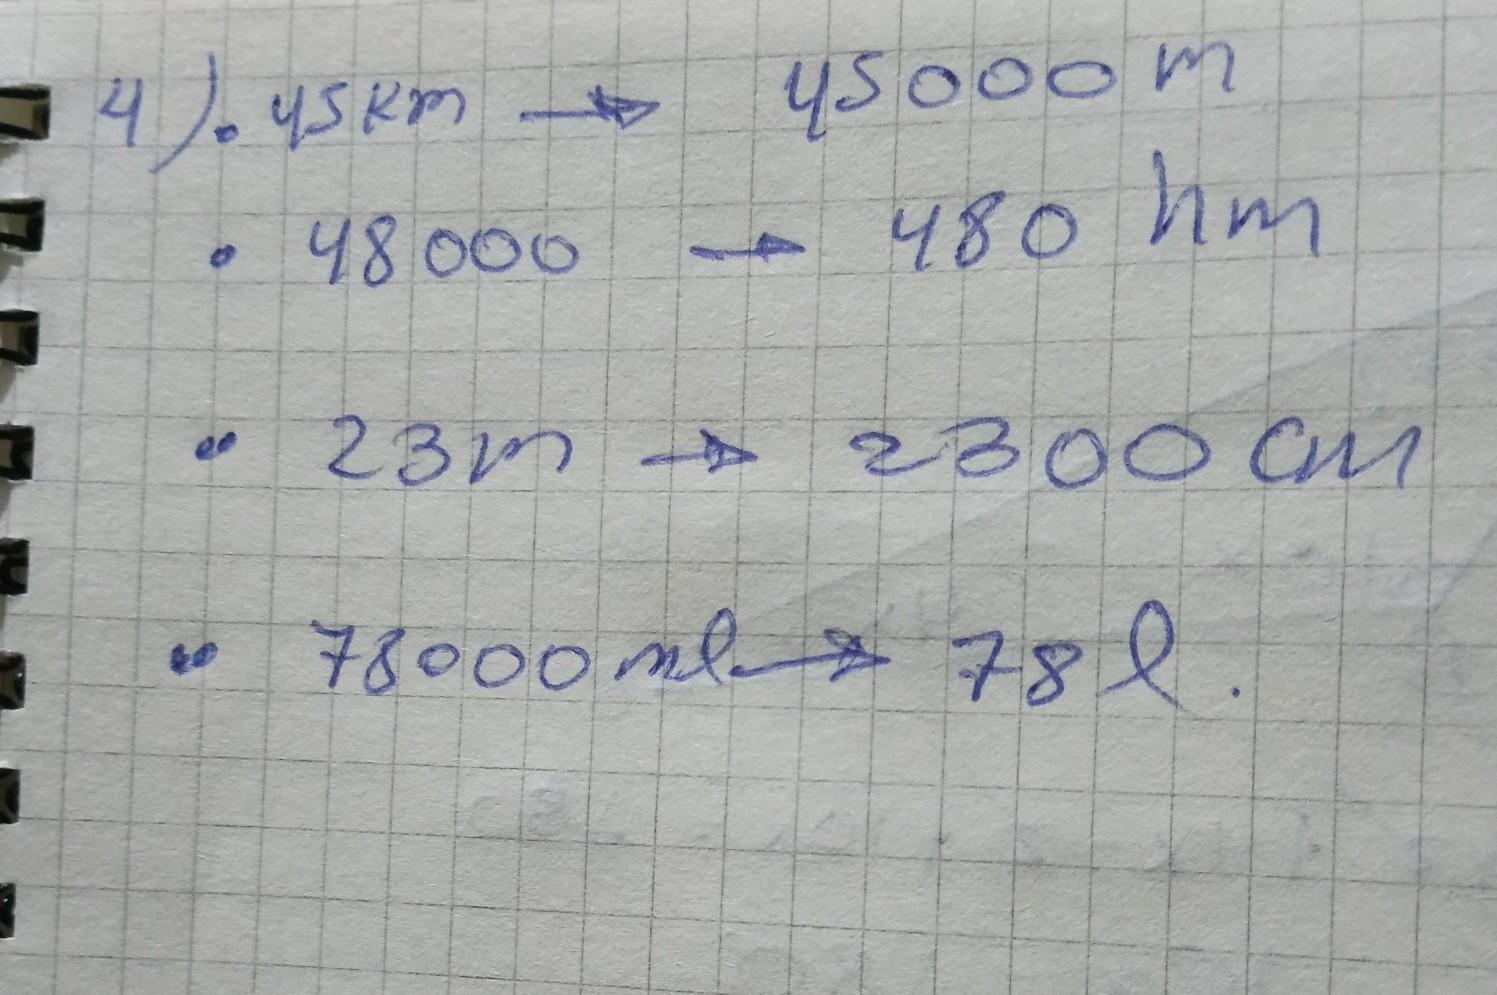 4). 45km → 45000 m
• 48000 → 480 hm
• 23m → 2300 cm
• 78000 ml → 78 l.